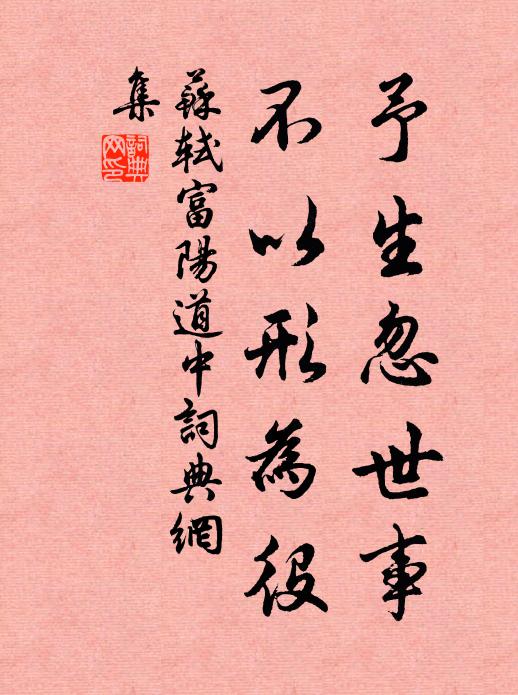 予生忽世事
不以形為役
蘇軾富陽道中詞典網
集
詞典网印